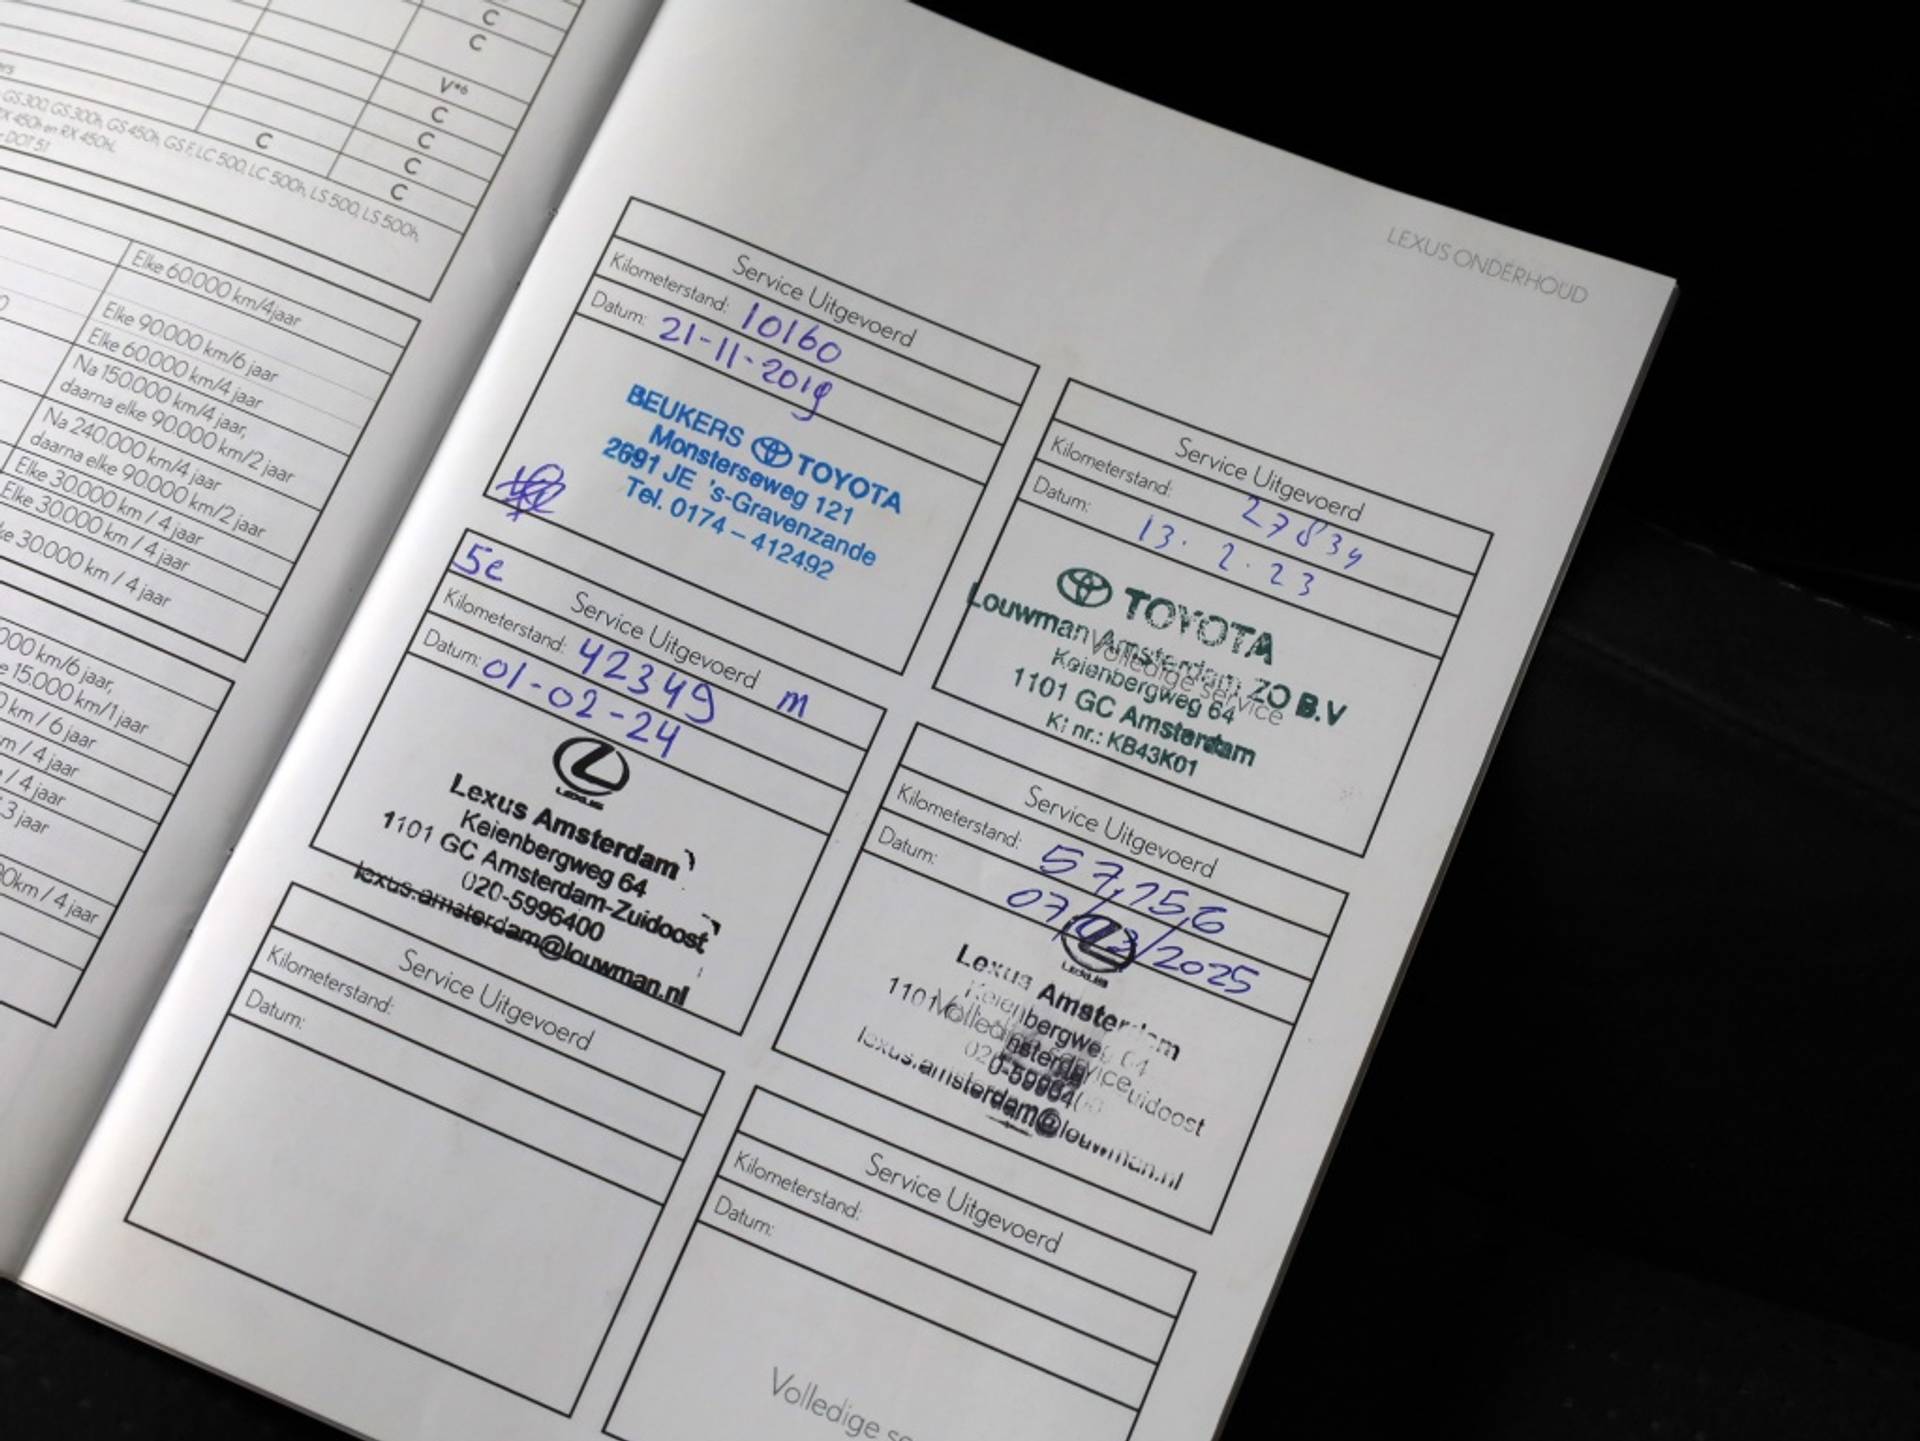 C
C
V*6
C
C
C
C
C
GS 300, GS 300h, GS 450h, GS F, LC 500, LC 500h, LS 500, LS 500h,
RX 450h en RX 450hL
DOT 5.1
Elke 60.000 km/4 jaar
Elke 90.000 km/6 jaar
Elke 60.000 km/4 jaar
Na 150.000 km/4 jaar,
daarna elke 90.000 km/2 jaar
Na 240.000 km/4 jaar
daarna elke 90.000 km/2 jaar
Elke 30.000 km / 4 jaar
Elke 30.000 km / 4 jaar
30.000 km / 4 jaar
000 km/6 jaar,
15.000 km/1 jaar
km / 6 jaar
/ 4 jaar
/ 4 jaar
3 jaar
km / 4 jaar
LEXUS ONDERHOUD
Service Uitgevoerd
Kilometerstand: 10160
Datum: 21-11-2019
BEUKERS TOYOTA
Monsterseweg 121
2691 JE 's-Gravenzande
Tel. 0174 – 412492
Service Uitgevoerd
Kilometerstand: 27834
Datum: 13.2.23
TOYOTA
Louwman Amsterdam ZO B.V
Volledige service
Keienbergweg 64
1101 GC Amsterdam
KI nr.: KB43K01
5e
Service Uitgevoerd
Kilometerstand: 42349 m
Datum: 01-02-24
LEXUS
Lexus Amsterdam
Keienbergweg 64
1101 GC Amsterdam-Zuidoost
020-5996400
lexus.amsterdam@louwman.nl
Service Uitgevoerd
Kilometerstand: 57,756
Datum: 07/02/2025
LEXUS
Lexus Amsterdam
Keienbergweg 64
1101 Amsterdam Zuidoost
Volledige service
020-5996400
lexus.amsterdam@louwman.nl
Service Uitgevoerd
Kilometerstand:
Datum:
Service Uitgevoerd
Kilometerstand:
Datum:
Volledige se